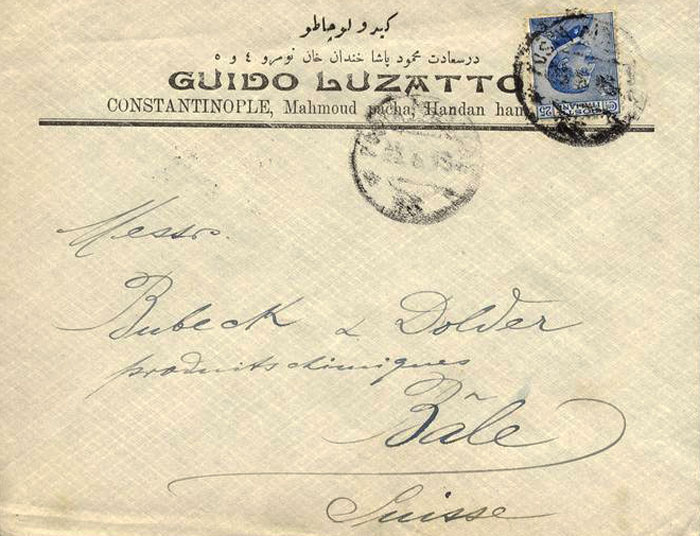 كيدو لوچاطو
درسعادت محمود پاشا خندان خان نومرو ٤ و ٥
GUIDO LUZATTO
CONSTANTINOPLE, Mahmoud pacha, Handan han
25
Messrs.
Bubeck & Dolder
produits chimiques
Bâle
Suisse